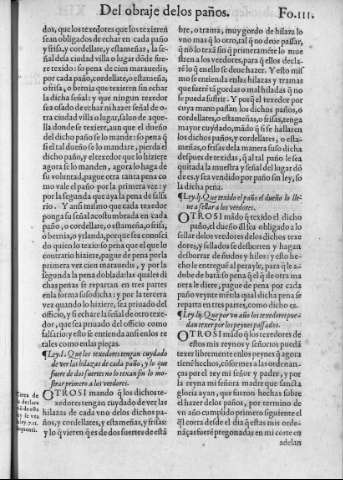 Del obraje delos paños. Fo.III.
dor, que los texedores que los texieren
sean obligados de echar en cada paño
y frisa, y cordellate, y estameñas, la se-
ñal dela ciudad villa o lugar dõde fue-
re texido: so pena de cien marauedis,
por cada paño, cordellate, o estameña,
o frisa, o bernia que texieren sin echar
la dicha señal: y que ningun texedor
sea osado de echar ni hazer señal de o-
tra ciudad villa o lugar, saluo de aque-
lla donde se texiere, aun que el dueño
del dicho paño se lo mande: so pena q̃
si el tal dueño se lo mandare, pierda el
dicho paño, y el texedor que lo hiziere
segun se lo manden, agora lo haga de
su voluntad, pague por tanta pena co
mo vale el paño por la primera vez: y
por la segunda que aya la pena de falsa
rio. Y ansi mismo que cada texedor
ponga su señal acostumbrada en cada
paño, o cordellate, o estameña, o frisa,
o bernia, o ylenda, por que sea conosci
do quien lo texio so pena que el que lo
contrario hiziere, pague de pena por la
primera vez cien marauedis, y por la
segunda la pena doblada: las quales di
chas penas se repartan en tres partes
enla forma susodicha: y por la tercera
vez quando lo hiziere, sea priuado del
officio, y si echare la señal de otro texe
dor, que sea priuado del officio como
falsario: y esto se entienda ansi en los te
lares como enlas pieças.
¶Ley.l. Que los texedores tengan cuydado
de ver las hilazas de cada paño, y lo que
fuere de dos suertes no lo texan sin lo mo-
strar primero a los veedores.
OTROSI mando q̃ los dichos te-
xedores tengan cuydado de ver las
hilazas de cada vno delos dichos pa-
ños, y cordellates, y estameñas, y frisas:
y lo q̃ vieren q̃ es de dos suertes de està
bre, o trama, muy gordo de hilaza lo
vno mas q̃ lo otro, tal q̃ no deue passar,
q̃ no lo texã sin q̃ primeramẽte lo mue
stren a los veedores, para q̃ ellos decla-
rẽ lo q̃ en ello se deue hazer. Y esto mis
mo se entienda enlas hilazas y tramas
que fuerẽ tã gordas o mal hiladas q̃ no
se pueda sufrir. Y porq̃ el texedor por
cuya mano passan los dichos paños, o
cordellates, o estameñas, o frisas, tenga
mayor cuydado, mãdo q̃ si se hallare en
los dichos paños, y cordellates, o esta-
meñas, o frisas dela manera suso dicha
despues de texidas, q̃ al tal paño le sea
quitada la muestra y señal del lugar dõ
de es, y sea vendido por paño sin ley, so
la dicha pena.
¶Ley.lj. Que texido el paño el dueño lo lle-
ue a sellar a los veedores.
OTROSI mãdo q̃ texido el dicho
paño, el dueño dl sea obligado a lo
sellar delos veedores delos dichos texe
dores, y sellados se desborren y hagan
desborrar de ñudos y hilos: y esto he-
cho le entregue al perayle, para q̃ le a-
dobe de barãs so pena q̃ el q̃ de otra ma
nera le diere, pague de pena por cada
paño veynte mrs la qual dicha pena se
reparta en tres partes, como dicho es.
¶Ley.lij. Que por vn año los texedores pue-
dan texer por los peynes passados.
OTROSI mãdo q̃ los texedores de
estos mis reynos y señorios pueda
texer libremente enlos peynes q̃ agora
tienẽ hechos, cõformes a las ordenanças
por el rey mi señor y padre, y por
la reyna mi señora madre que sancta
gloria ayan, que fueron hechas sobre
el hazer delos paños, por termino de
vn año cumplido primero siguiente el
q̃l corra desde el dia q̃ estas mis orde-
nãças fuerẽ pregonadas en mi corte en
adelan